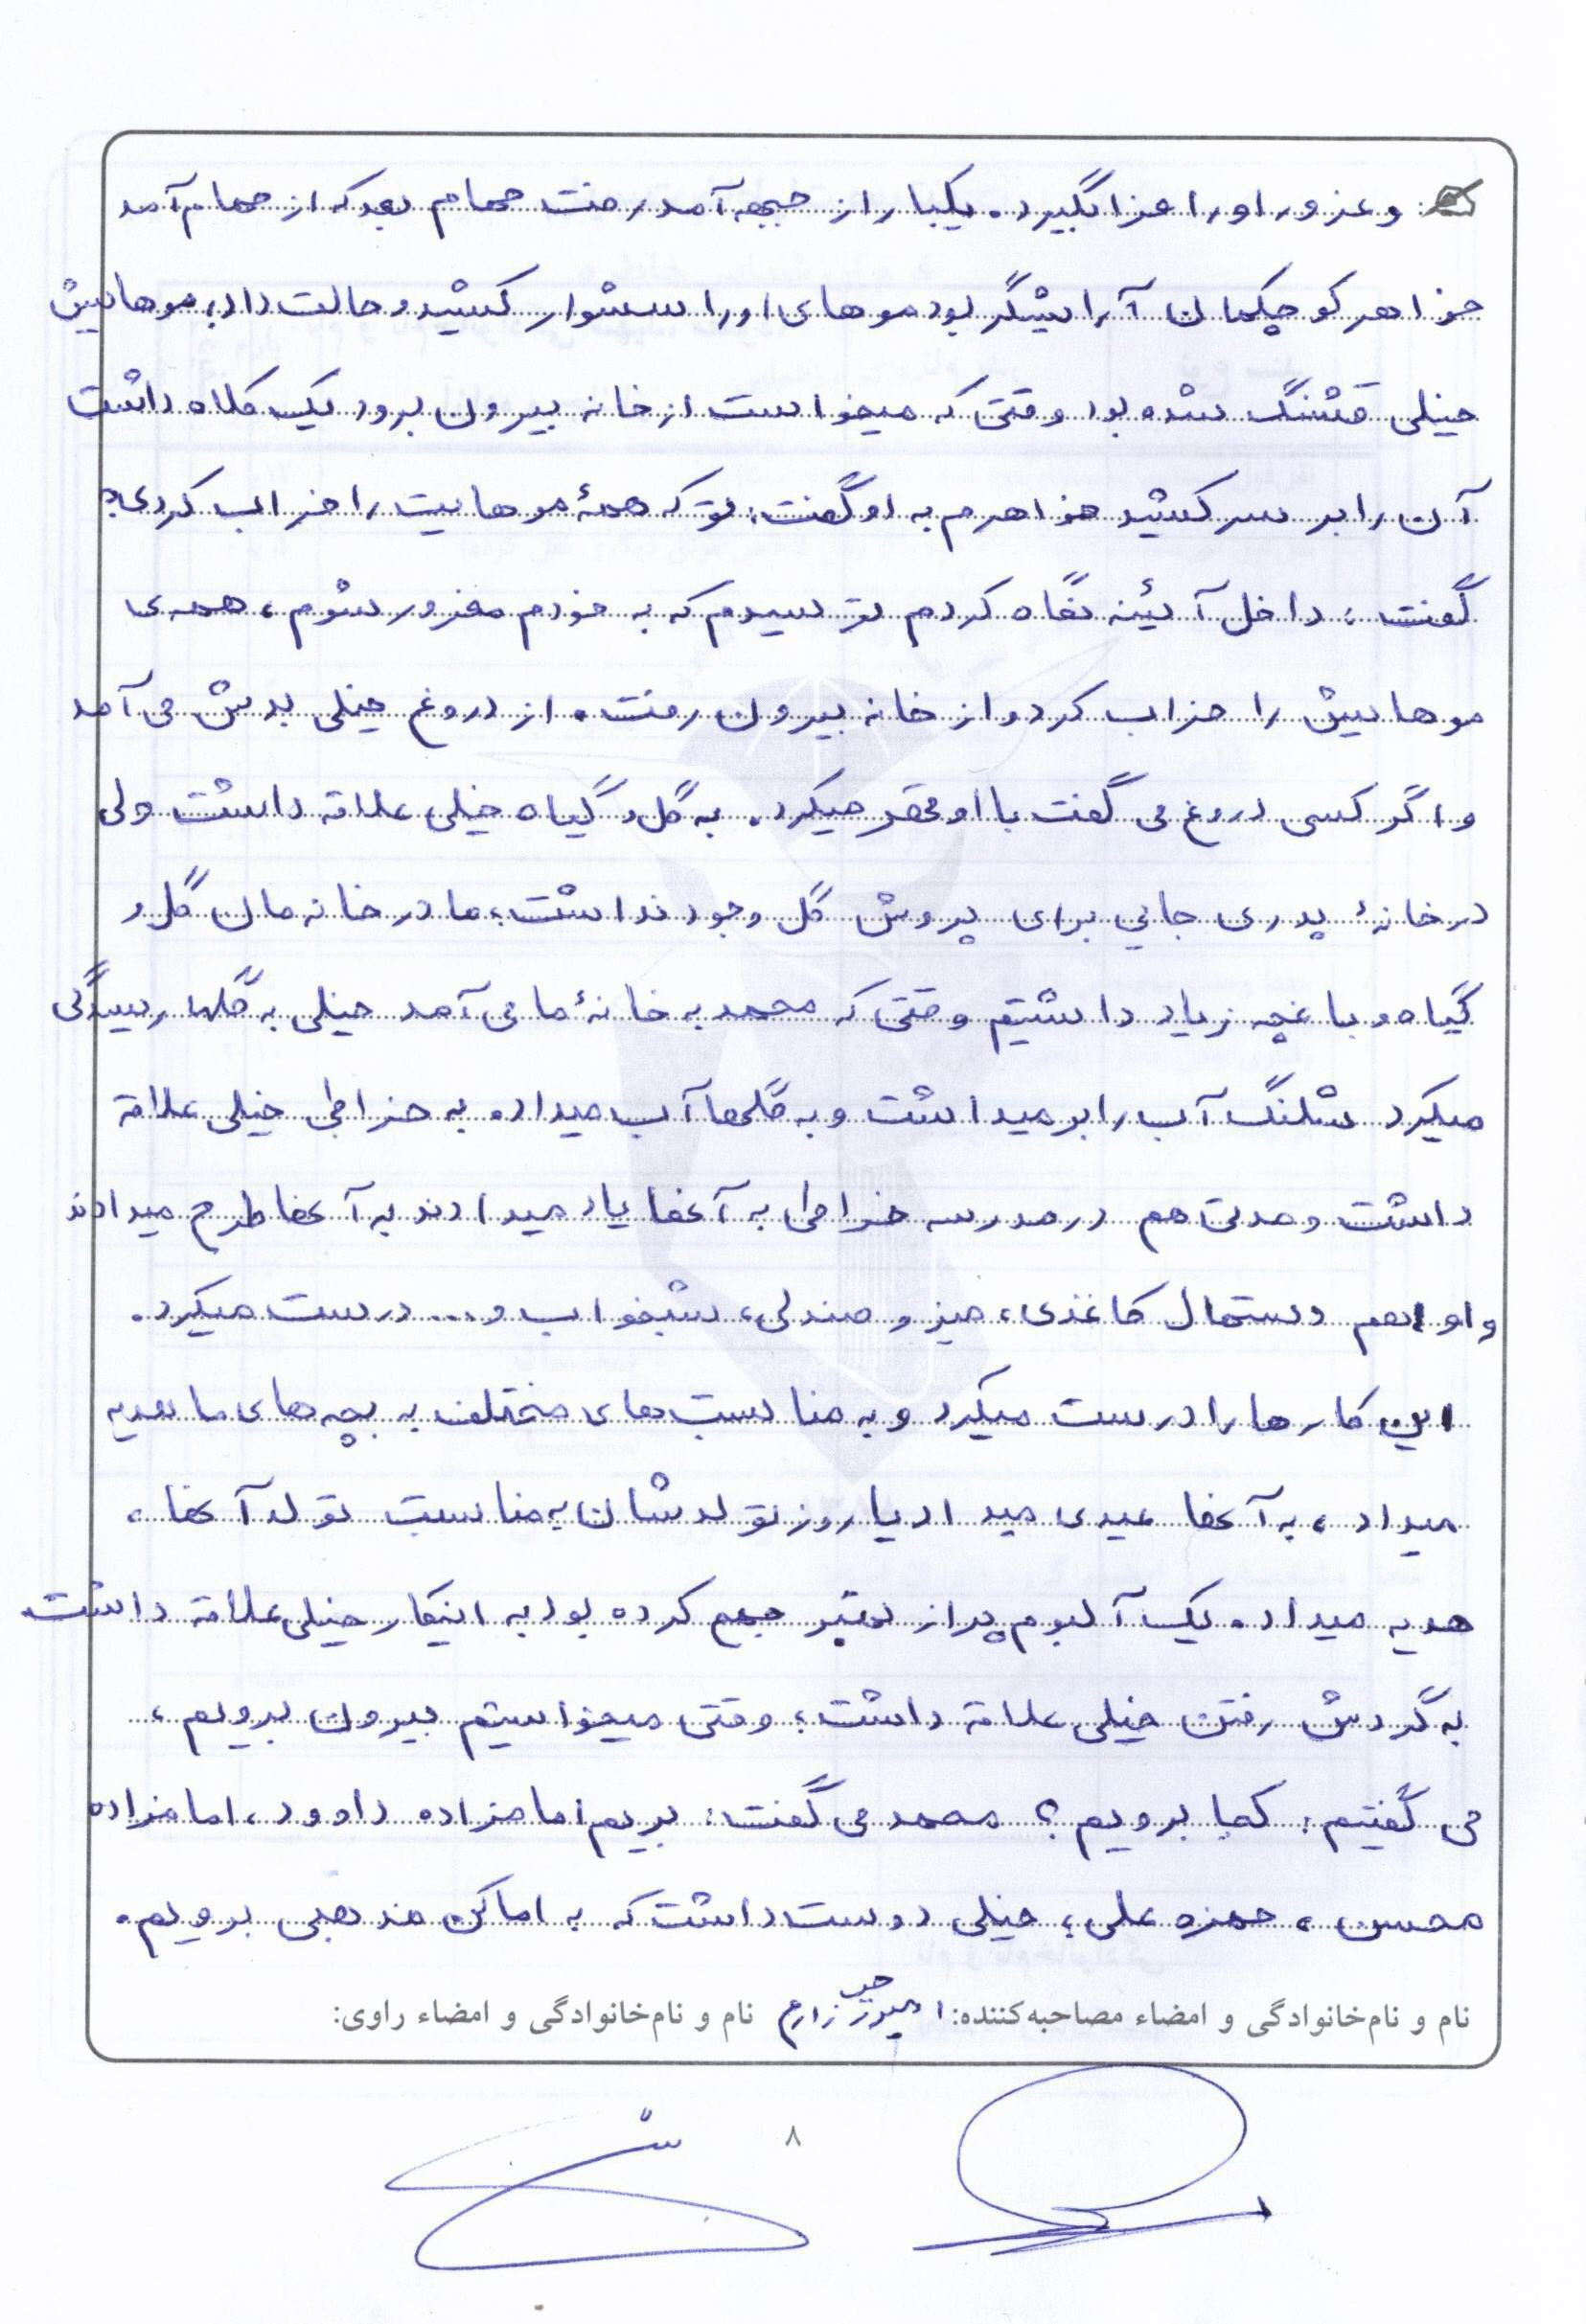 و غرور او را فرا نگیرد. یکبار از جبهه آمد رفت حمام بعد که از حمام آمد
خواهر کوچکمان آرایشگر بود موهای او را سشوار کشید و حالت داد؛ موهایش
خیلی قشنگ شده بود وقتی که میخواست از خانه بیرون برود یک کلاه داشت
آن را بر سر کشید خواهرم به او گفت: تو که همهٔ موهایت را خراب کردی؟
گفت: داخل آئینه نگاه کردم ترسیدم که به خودم مغرور شوم، همه‌ی
موهایش را خراب کرد و از خانه بیرون رفت. از دروغ خیلی بدش می آمد
و اگر کسی دروغ می گفت با او قهر میکرد. به گل و گیاه خیلی علاقه داشت ولی
در خانهٔ پدری جایی برای پروش گل وجود نداشت؛ ما در خانه مان گل و
گیاه و باغچه زیاد داشتیم وقتی که محمد به خانهٔ ما می آمد خیلی به گلها رسیدگی
میکرد شلنگ آب را بر میداشت و به گلها آب میداد. به خراطی خیلی علاقه
داشت و مدتی هم در مدرسه خراطی به آنها یاد میدادند به آنها طرح میدادند
و او هم دستمال کاغذی، میز و صندلی، تختخواب و... درست میکرد.
این کارها را درست میکرد و به مناسبت‌های مختلف به بچه‌های ما هدیه
میداد، به آنها عیدی میداد یا روز تولدشان به مناسبت تولد آنها،
هدیه میداد. یک آلبوم پر از تمبر جمع کرده بود به اینکار خیلی علاقه داشت
به گردش رفتن خیلی علاقه داشت؛ وقتی میخواستیم بیرون برویم،
می گفتیم: کجا برویم؟ محمد می گفت: بریم امامزاده داوود، امامزاده
محسن، حمزه علی؛ خیلی دوست داشت که به اماکن مذهبی برویم.
نام و نام‌خانوادگی و امضاء مصاحبه‌کننده: نام و نام‌خانوادگی و امضاء راوی:
۸